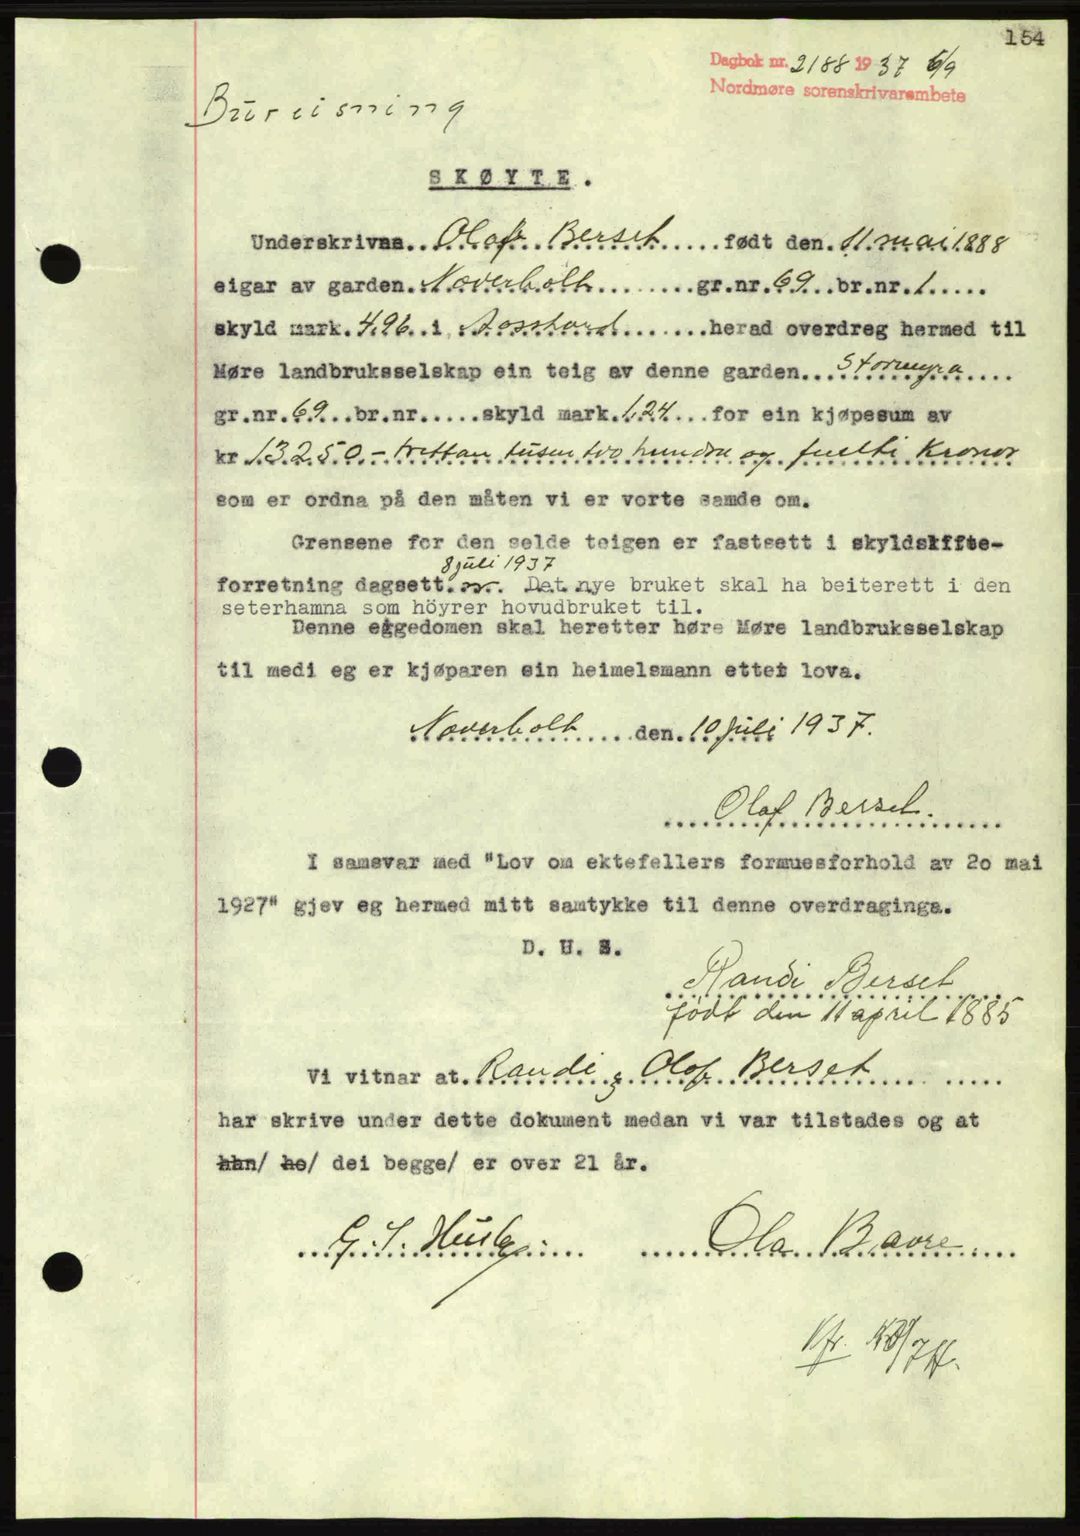 154
Dagbok nr. 2188 1937 6/9
Nordmøre sorenskrivarembete
Bureisning
SKØYTE.
Underskrivne..Olaf Berset.....født den.11.mai.1888
eigar av garden.Næverholt........gr.nr.69..br.nr.1.....
skyld mark.4.96..i.Aasskard.......herad overdreg hermed til
Møre landbruksselskap ein teig av denne garden...Stormyra....
gr.nr.69...br.nr.....skyld mark.1.24...for ein kjøpesum av
kr.13250.- trettan tusen two hundra og femti Kroner
som er ordna på den måten vi er vorte samde om.
Grensene for den selde teigen er fastsett i skyldskifte-
8 juli 1937
forretning dagsett.... Det nye bruket skal ha beiterett i den
seterhamna som höyrer hovudbruket til.
Denne eggedomen skal heretter høre Møre landbruksselskap
til medi eg er kjøparen sin heimelsmann etter lova.
Næverholt......den.10 juli 1937.
Olaf Berset.
I samsvar med "Lov om ektefellers formuesforhold av 2o mai
1927" gjev eg hermed mitt samtykke til denne overdraginga.
D. U. S.
Randi Berset
født den 11 april 1885
Vi vitnar at.Randi & Olaf Berset..........
har skrive under dette dokument medan vi var tilstades og at
han/ ho/ dei begge/ er over 21 år.
G. S. Husby......Ola Bavre....
Kfr.